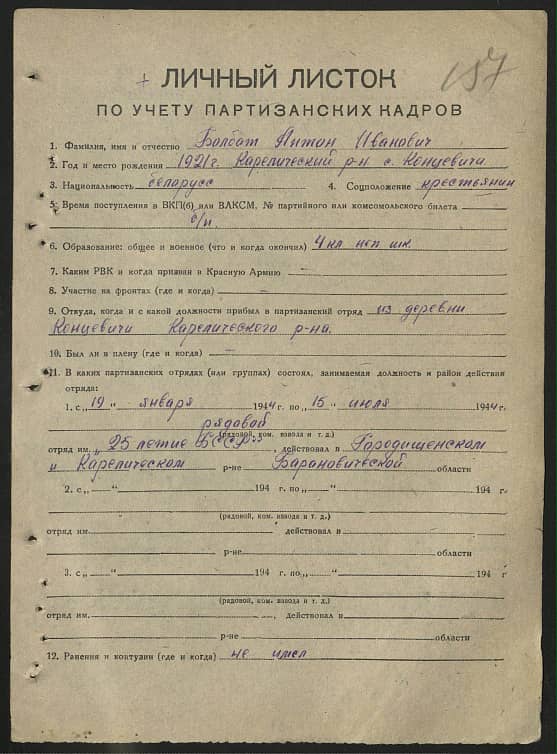 157
+ ЛИЧНЫЙ ЛИСТОК
ПО УЧЕТУ ПАРТИЗАНСКИХ КАДРОВ
1. Фамилия, имя и отчество Болбат Антон Иванович
2. Год и место рождения 1921 г. Карелический р-н с. Концевичи
3. Национальность белорусс 4. Соцположение крестьянин
5. Время поступления в ВКП(б) или ВЛКСМ, № партийного или комсомольского билета
б/п.
6. Образование: общее и военное (что и когда окончил) 4 кл неп шк.
7. Каким РВК и когда призван в Красную Армию
8. Участие на фронтах (где и когда)
9. Откуда, когда и с какой должности прибыл в партизанский отряд из деревни
Концевичи Карелического р-на.
10. Был ли в плену (где и когда)
11. В каких партизанских отрядах (или группах) состоял, занимаемая должность и район действия
отряда:
1. с „19“ января 1944 г. по „15“ июля 1944 г.
рядовой
(рядовой, ком. взвода и т. д.)
отряд им. „25 летие БССР“, действовал в Городищенском
и Карелическом р-не Барановической области
2. с „ “ 194 г. по „ “ 194 г.
(рядовой, ком. взвода и т. д.)
отряд им. действовал в
р-не области
3. с „ “ 194 г. по „ “ 194 г
(рядовой, ком. взвода и т. д.)
отряд им. , действовал в
р-не области
12. Ранения и контузии (где и когда) не имел